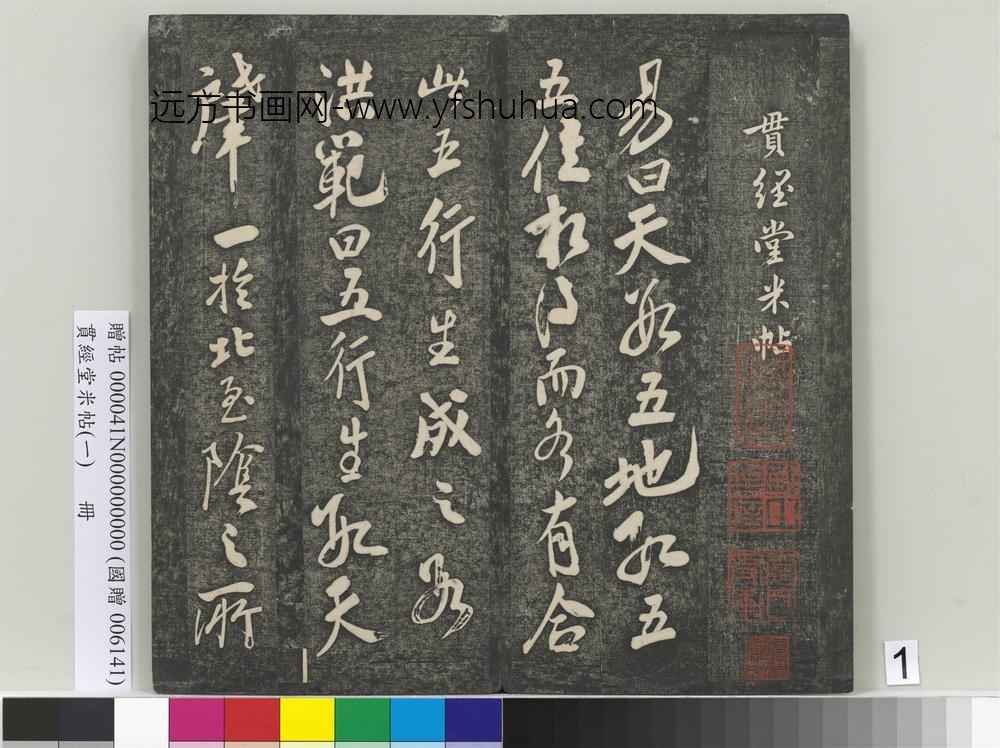 远方书画网-www.yfshuhua.com
貫經堂米帖
易曰天數五地數五
五位相得而各有合
此五行生成之數
洪範曰五行生數天
肇一於北至陰之所
贈帖 000041N000000000 (國贈 006141)
貫經堂米帖(一) 冊
1